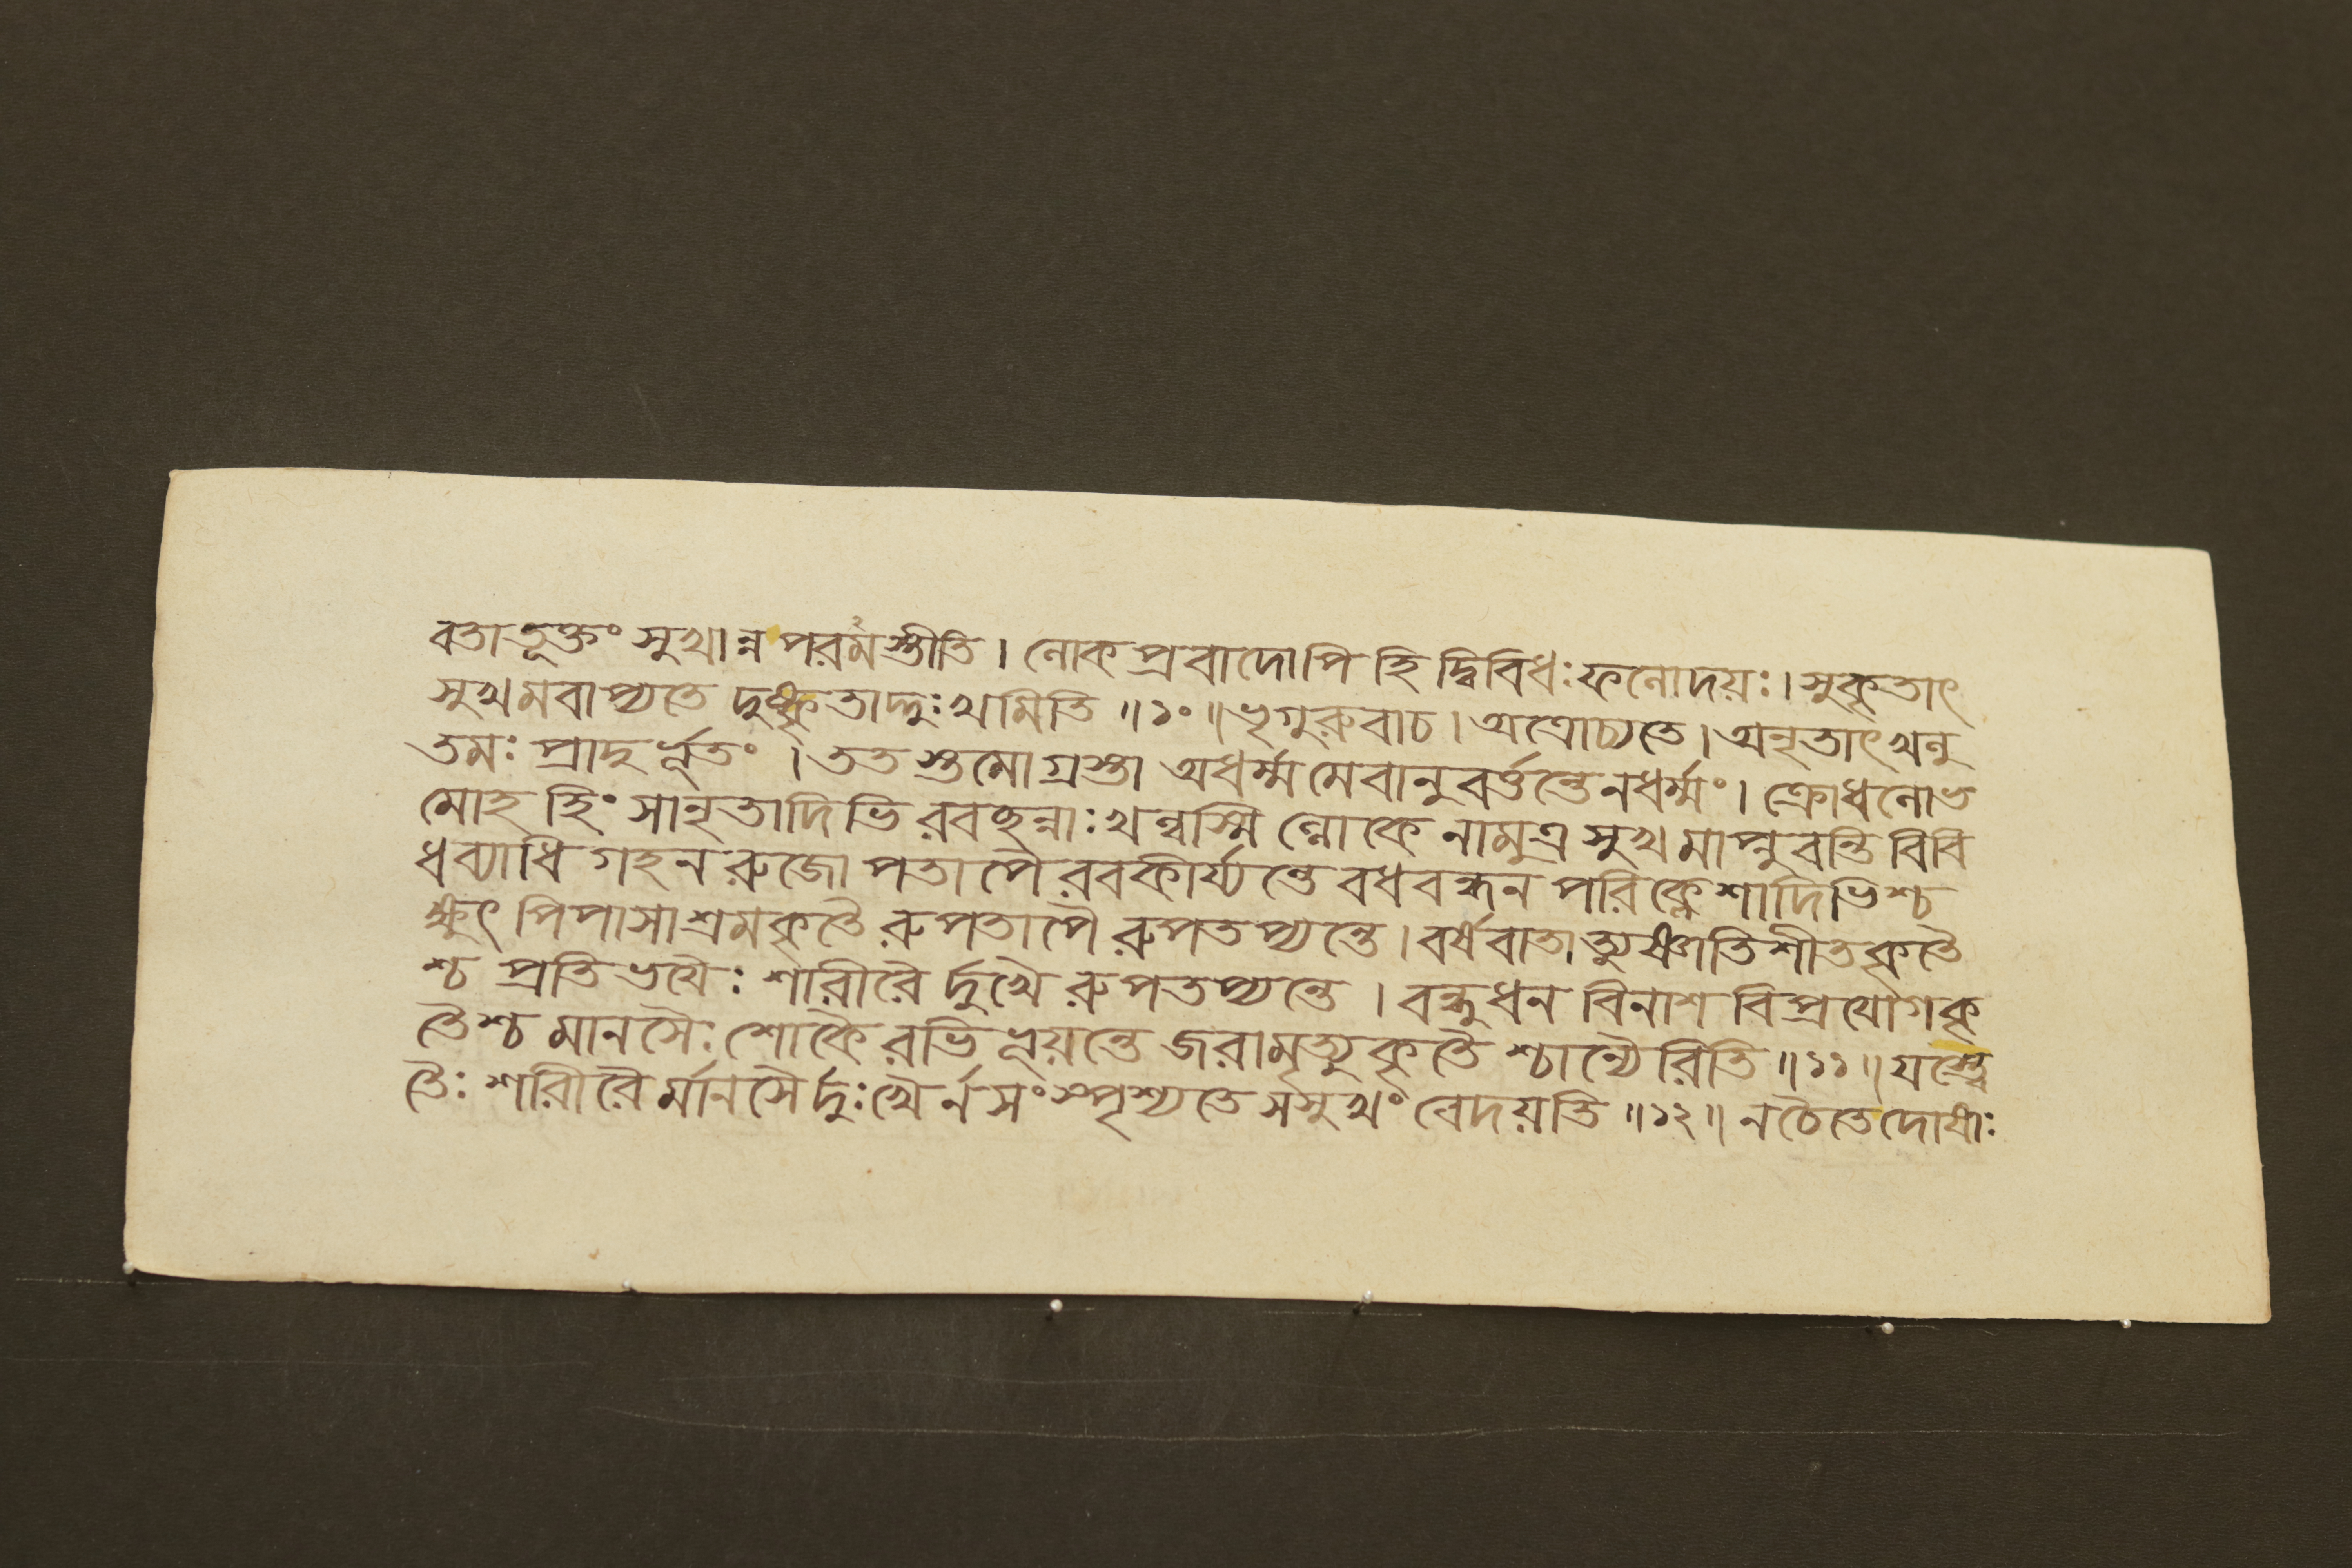 বতাতূক্তং সুখান্ন পরমমস্তীতি। লোকপ্রবাদোপি হি দ্বিবিধঃ ফলোদয়ঃ। সুকৃতাৎ
সুখমবাপ্যতে দুষ্কৃতাদ্দুঃখমিতি॥১০॥ ভৃগুরুবাচ। অত্রোচ্যতে। অনৃতাৎ খলু
তমঃ প্রাদুর্ভূতং। ততস্তমোগ্রস্তা অধর্ম্মমেবানুবর্ত্তন্তে ন ধর্ম্মং। ক্রোধলোভ
মোহহিংসানৃতাদিভিরবচ্ছন্নাঃ খল্বস্মিল্লোকে নামুত্র সুখমাপ্নুবন্তি বিবি
ধব্যাধিগহনরুজোপতাপৈরবকীর্য্যন্তে বধবন্ধনপরিক্লেশাদিভিশ্চ
ক্ষুৎপিপাসাশ্রমকৃতৈরুপতাপৈরুপতপ্যন্তে। বর্ষবাতাত্যুষ্ণাতিশীতকৃতৈ
শ্চ প্রতিভয়ৈঃ শারীরৈর্দুখৈরুপতপ্যন্তে। বন্ধুধনবিনাশবিপ্রযোগকৃ
তৈশ্চ মানসৈঃ শোকৈরভিভূয়ন্তে জরামৃত্যুকৃতৈশ্চান্যৈরিতি॥১১॥ যস্ত্বে
তৈঃ শরীরৈর্মানসৈর্দুঃখৈর্ন সংস্পৃশ্যতে স সুখং বেদয়তি॥১২॥ নচৈতে দোষাঃ